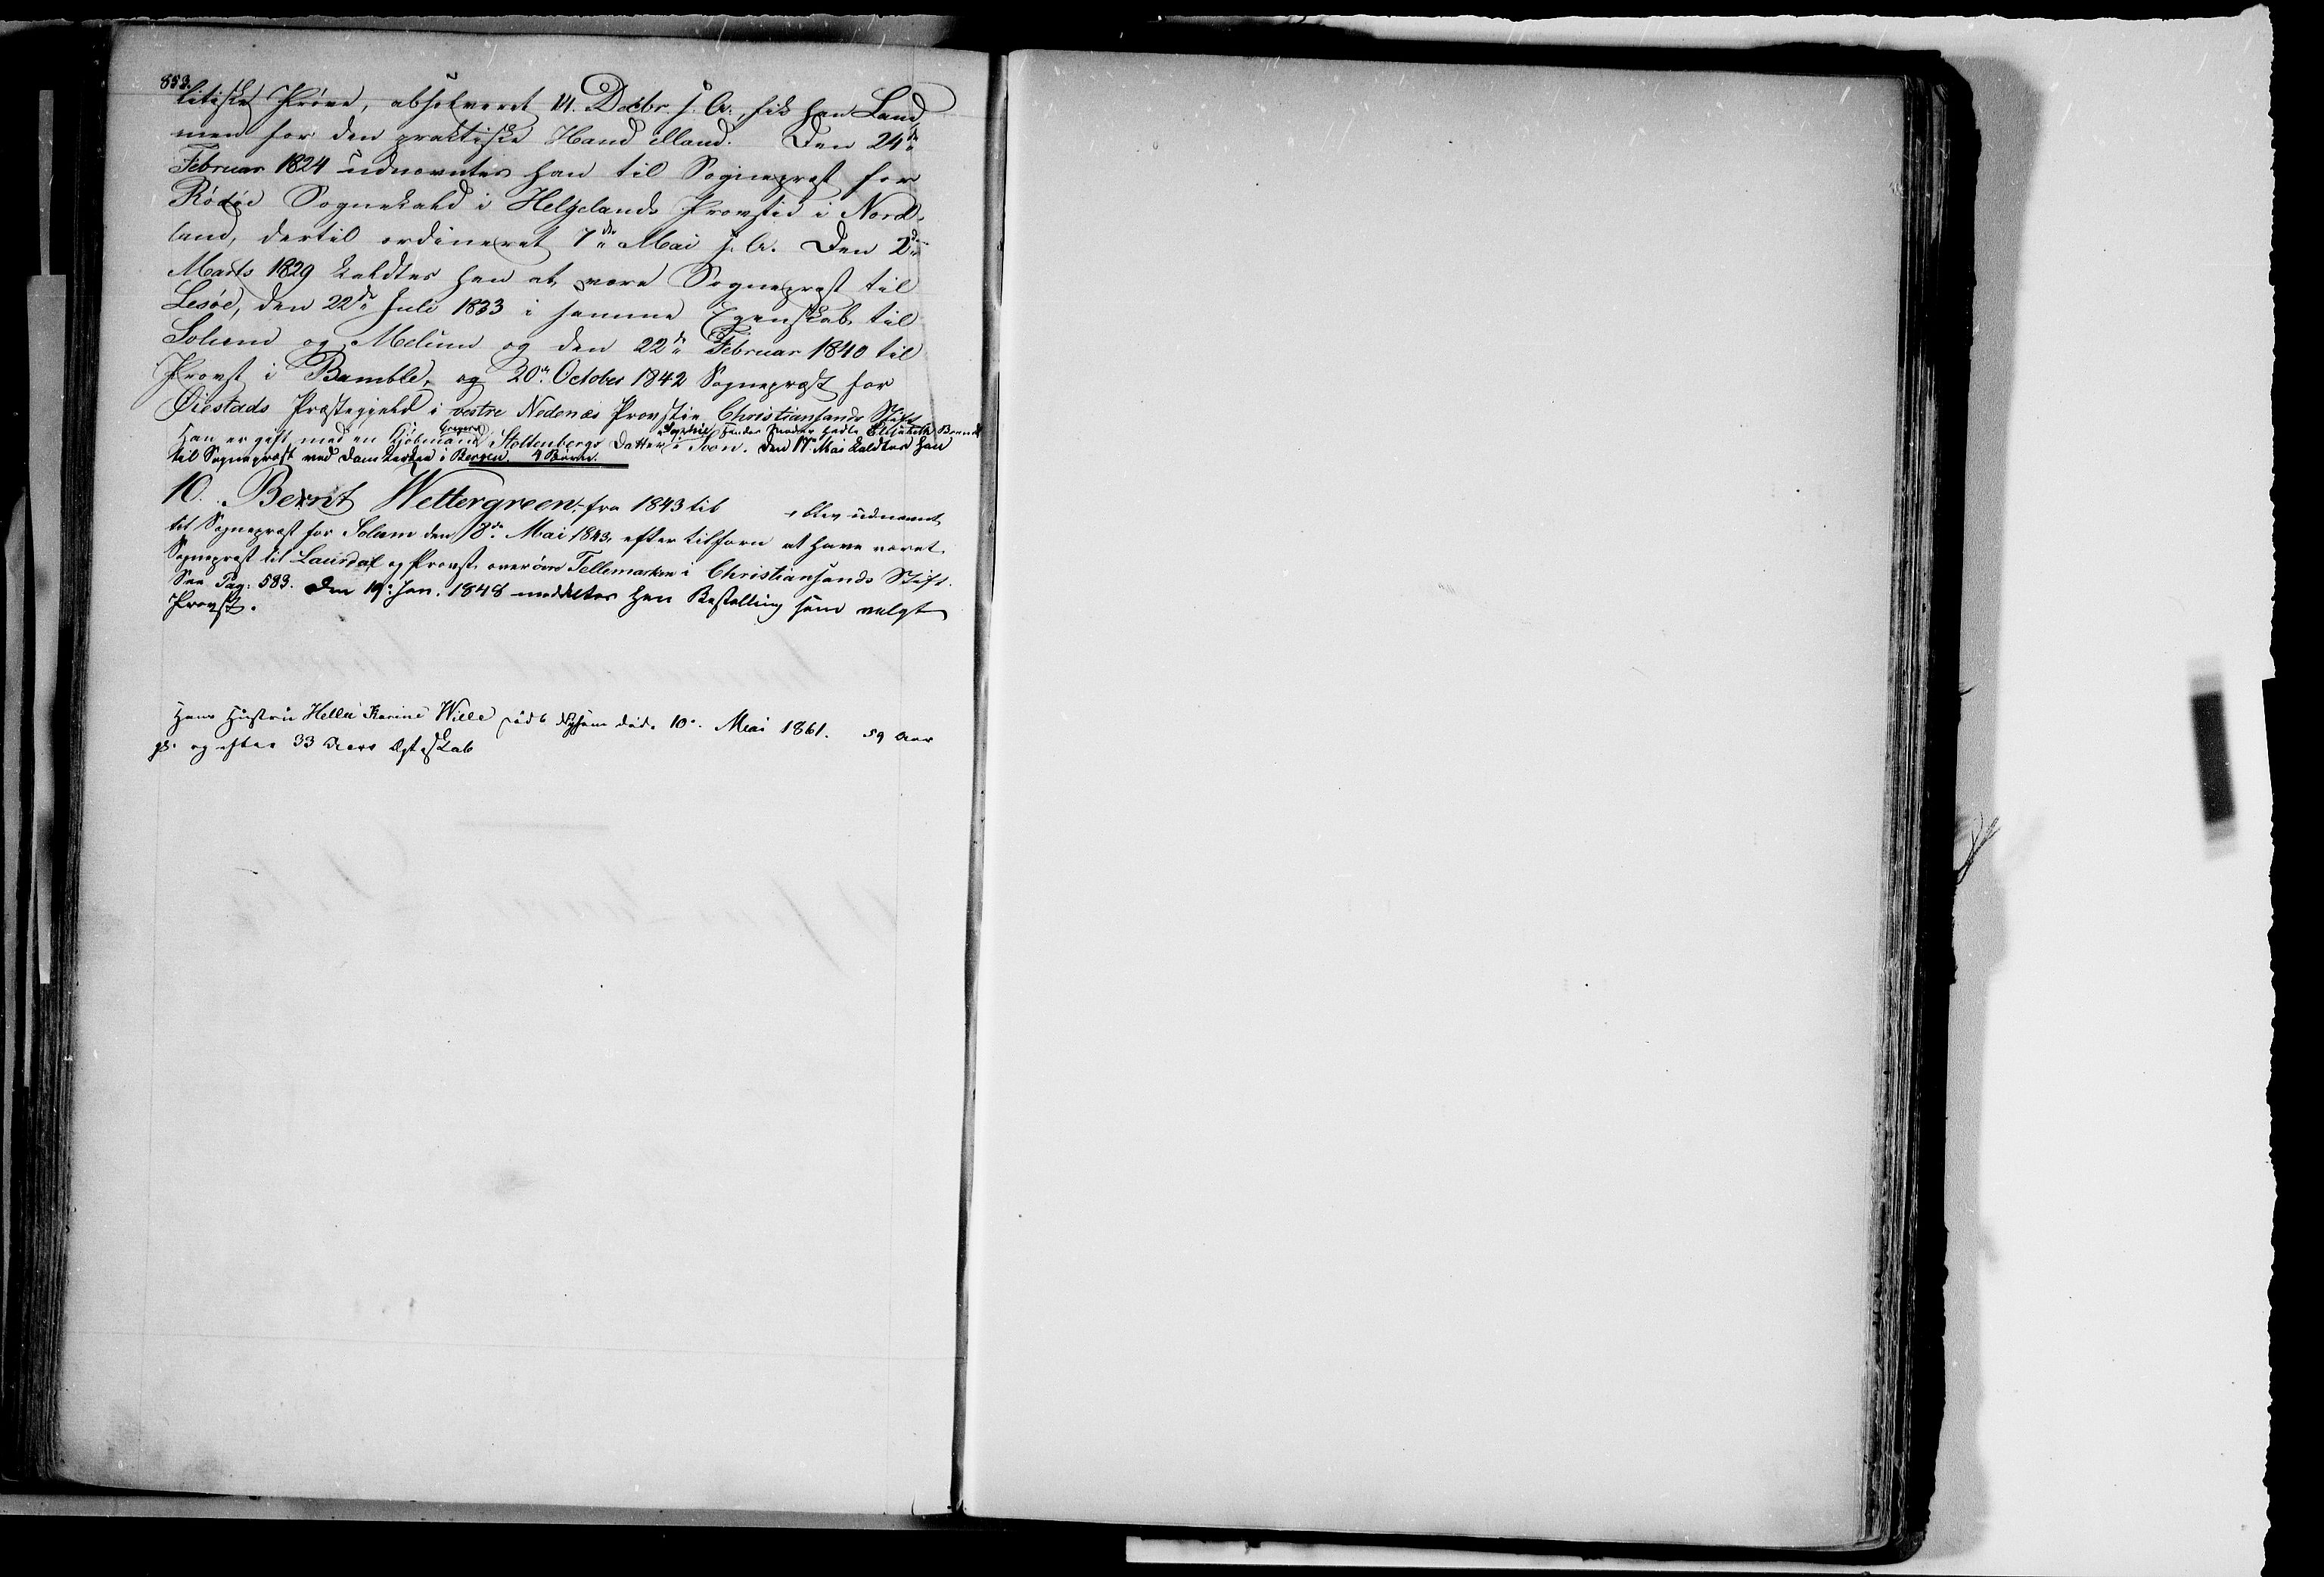 853.
litiske Prøve, absolveret 14. Decbr. s. A., fik han Laud,
men for den praktiske Haud illaud. Den 24de
Februar 1824 udnævntes han til Sognepræst for
Rødøe Sognekald i Helgelands Provstie i Nord-
land, dertil ordineret 7de Mai s. A. Den 2den
Marts 1829 kaldtes han at være Sognepræst til
Lesøe, den 22de Juli 1833 i samme Egenskab til
Solum og Melum og den 22de Februar 1840 til
Provst i Bamble, og 20de October 1842 Sognepræst for
Øiestads Præstegjeld i vestre Nedenæs Provstie Christiansands Stift
Gregers Sophie, hendes Moder hedte Elisabeth
Han er gift med en Kjøbmand Stoltenbergs Datter i Soon. Den 17 Mai kaldtes han
til Sognepræst ved Domkirken i Bergen. 4 Børn.
10. Bernt Wettergreen, fra 1843 til , blev udnævnt
til Sognepræst for Solum den 8de Mai 1843, efter tilforn at have været
Sognepræst til Laurdal og Provst over øvre Tellemarken i Christiansands Stift.
See Pag: 583. Den 19de Jan. 1848 meddeltes ham Bestalling som valgt
Provst.
Hans Hustru Helle Karine Wille død. 10de Mai 1861. 59 Aar
gl. og efter 33 Aars Ægteskab